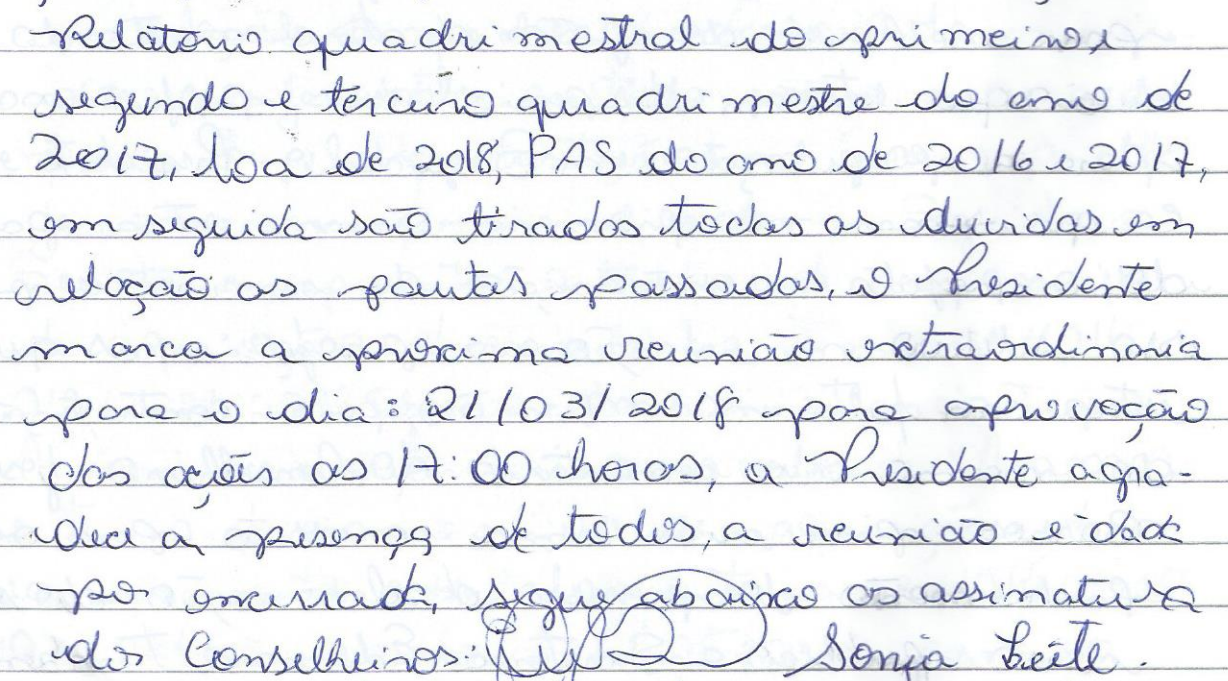 Relátorio quadrimestral do primeiro e
segundo e terceiro quadrimestre do ano de
2017, loa de 2018, PAS do ano de 2016 e 2017,
em seguida são tirados todas as duvidas em
relação as pautas passadas, o Presidente
marca a proxima reunião extraordinaria
para o dia: 21/03/2018 para aprovação
das ações as 17:00 horas, a Presidente agra-
dece a presença de todos, a reunião é dada
por encerrada, segue abaixo as assinatura
dos Conselheiros: Sonja Leite.